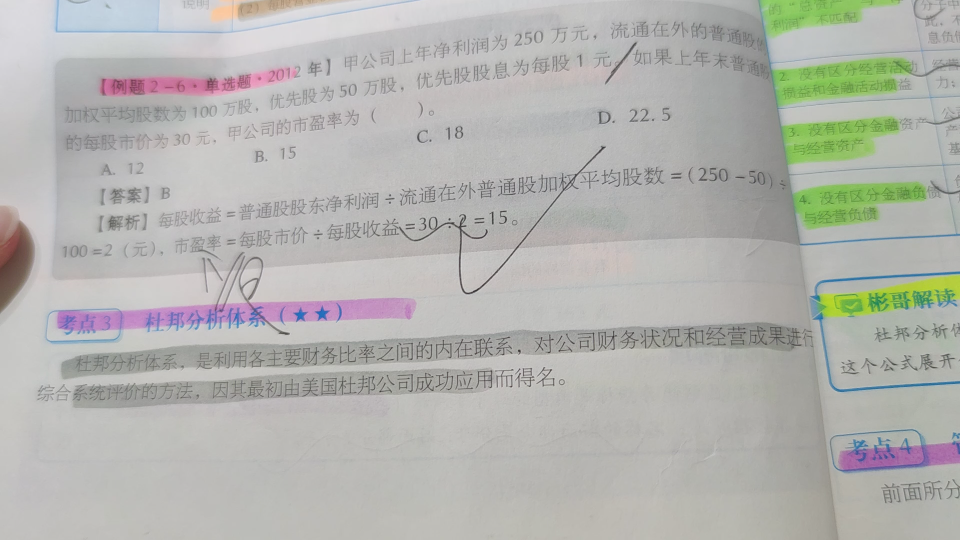 说明
(2) 每股
【例题2-6·单选题·2012年】甲公司上年净利润为250万元，流通在外的普通股
加权平均股数为100万股，优先股为50万股，优先股股息为每股1元。如果上年末普通
的每股市价为30元，甲公司的市盈率为（　　）。
A. 12　B. 15　C. 18　D. 22.5
【答案】B
【解析】每股收益=普通股股东净利润÷流通在外普通股加权平均股数=(250-50)÷
100=2（元），市盈率=每股市价÷每股收益=30÷2=15。
考点3　杜邦分析体系（★★）
杜邦分析体系，是利用各主要财务比率之间的内在联系，对公司财务状况和经营成果进行
综合系统评价的方法，因其最初由美国杜邦公司成功应用而得名。
的“总资产”
利润”不匹配
息负
2. 没有区分经营活动
损益和金融活动损益
经营
力：
3. 没有区分金融资产
与经营资产
产
基
4. 没有区分金融负债
与经营负债
彬哥解读
杜邦分析体
这个公式展开
考点4
前面所分